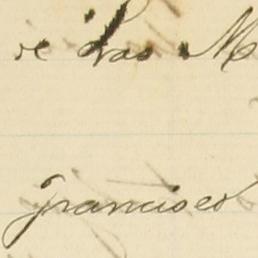 de Las M
francisco